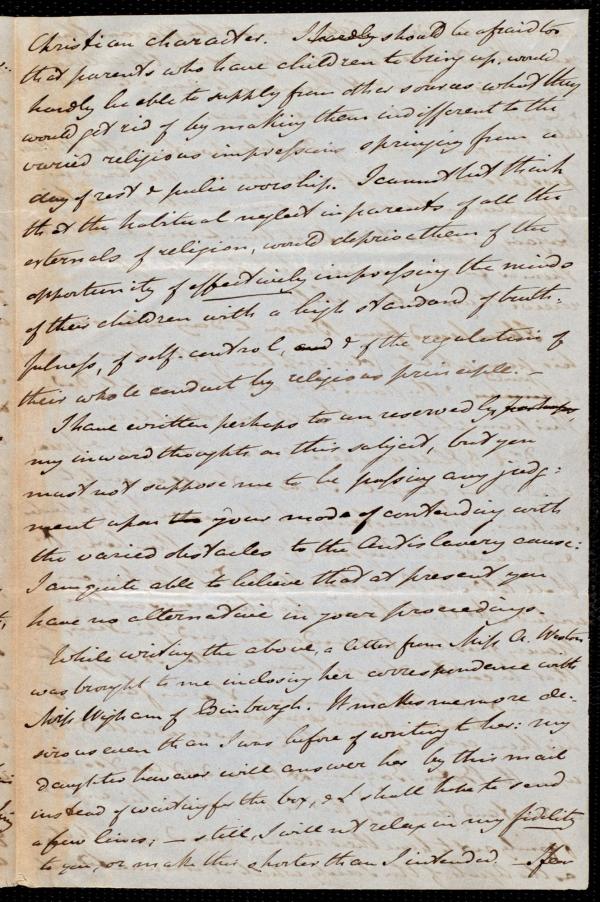 Christian character. I hardly should be afraid too
that parents who have children to bring up, would
hardly be able to supply from other sources what they
would get rid of by making them indifferent to the
varied religious impressions springing from a
day of rest & public worship. I cannot but think
that the habitual neglect in parents of all the
externals of religion, would deprive them of the
opportunity of effectively impressing the minds
of their children with a high standard of truth-
fulness, of self-control, and & of the regulation of
their whole conduct by religious principle. —
I have written perhaps too unreservedly perhaps,
my inward thoughts on this subject, but you
must not suppose me to be passing any judg:
ment upon the your mode of contending with
the varied obstacles to the Antislavery cause:
I am quite able to believe that at present you
have no alternative in your proceedings.
While writing the above, a letter from Miss A. Weston
was brought to me inclosing her correspondence with
Miss Wigham of Edinburgh. It makes me more de-
sirous even than I was before of writing to her: my
daughter however will answer her by this mail
instead of waiting for the box, & I shall hope to send
a few lines; — still, I will not relax in my fidelity
to you, or make this shorter than I intended. — I fear